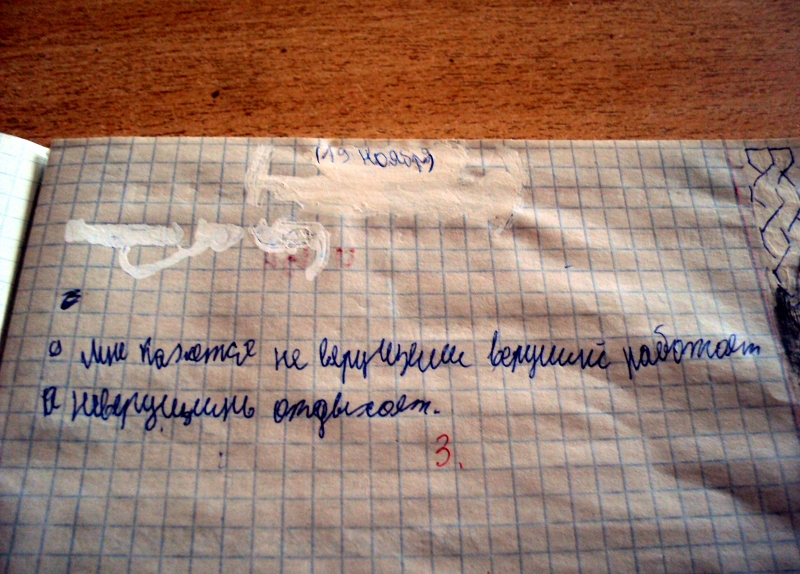 (19 ноября)
Мне кажется не верущеми верущий работает
а неверущинь отдыхает.
3.